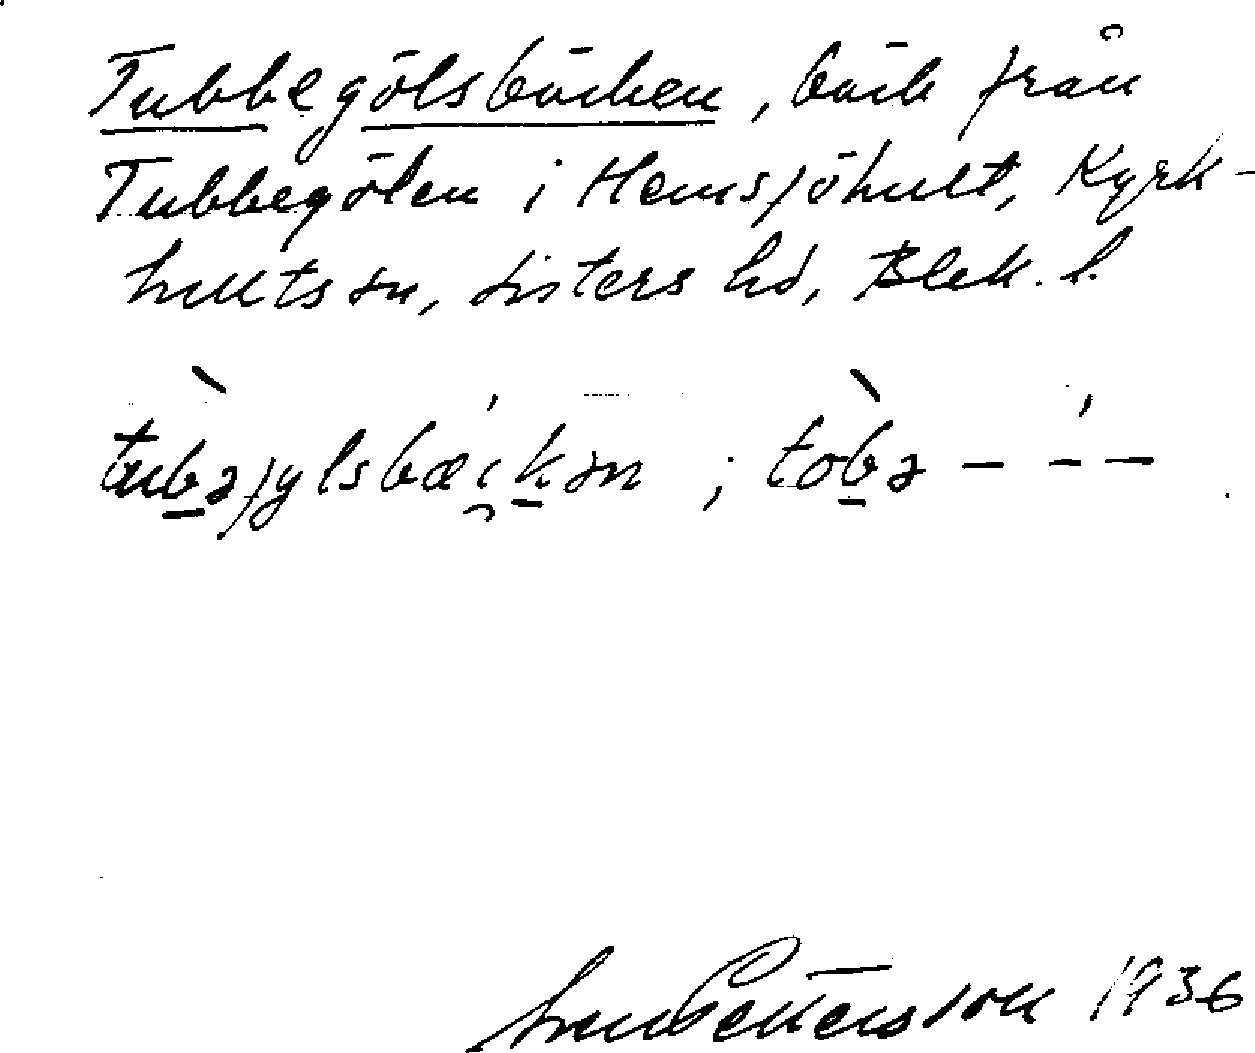 Tubbegölsbäcken, bäck från
Tubbegölen i Hemsjöhult, Kyrk-
hults sn, Listers hd, Blek. l.
tub̠əjylsbæi̯k̠ən ; tob̠ə – – –
Pettersson 1936